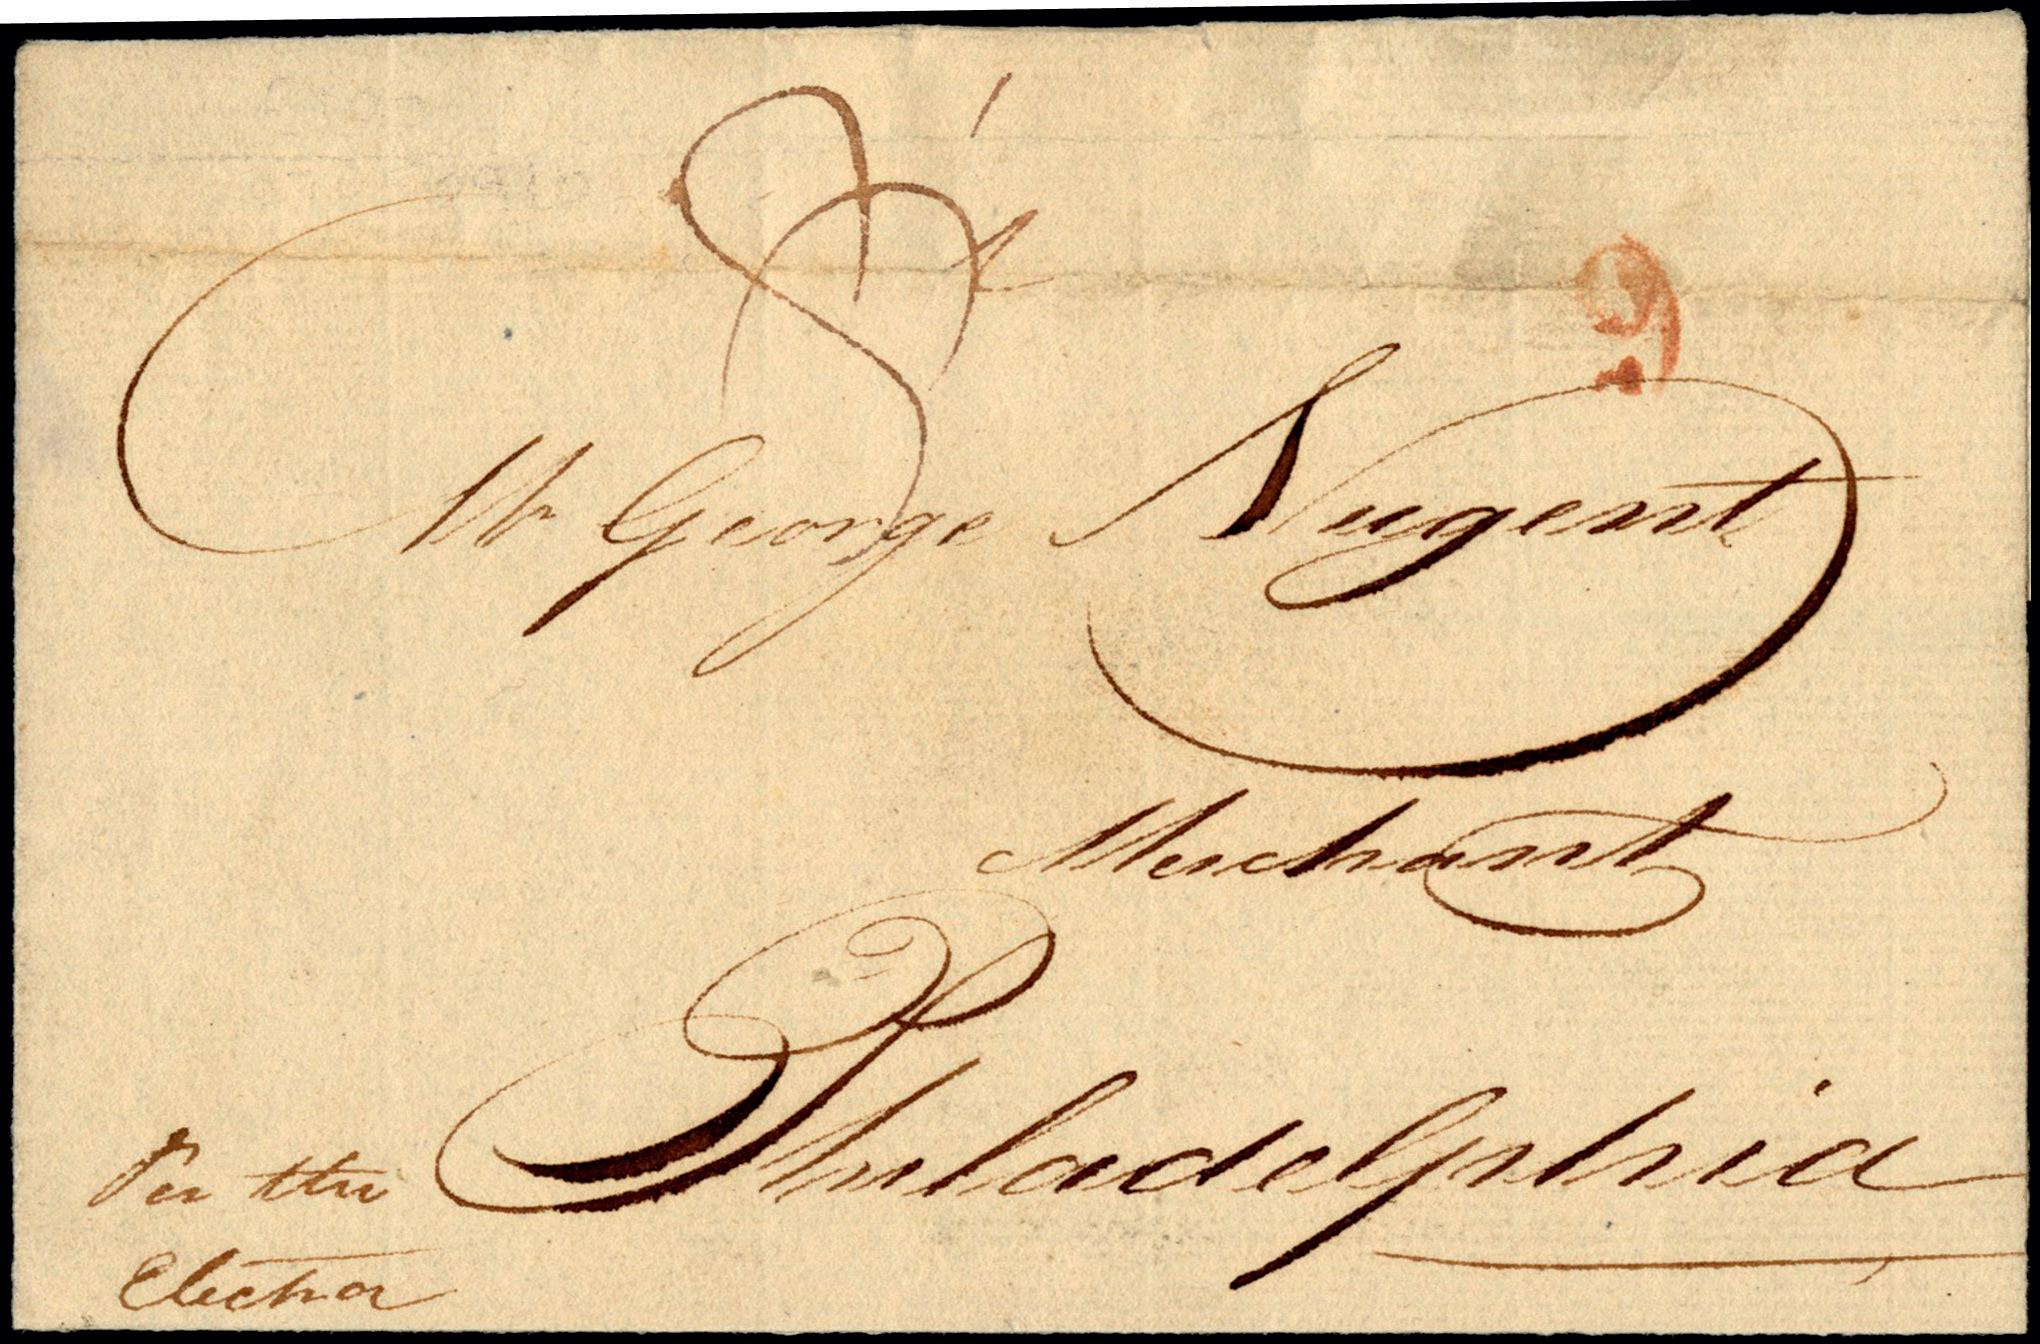 Mr George Nugent
Merchant
Philadelphia
Per the
Electra